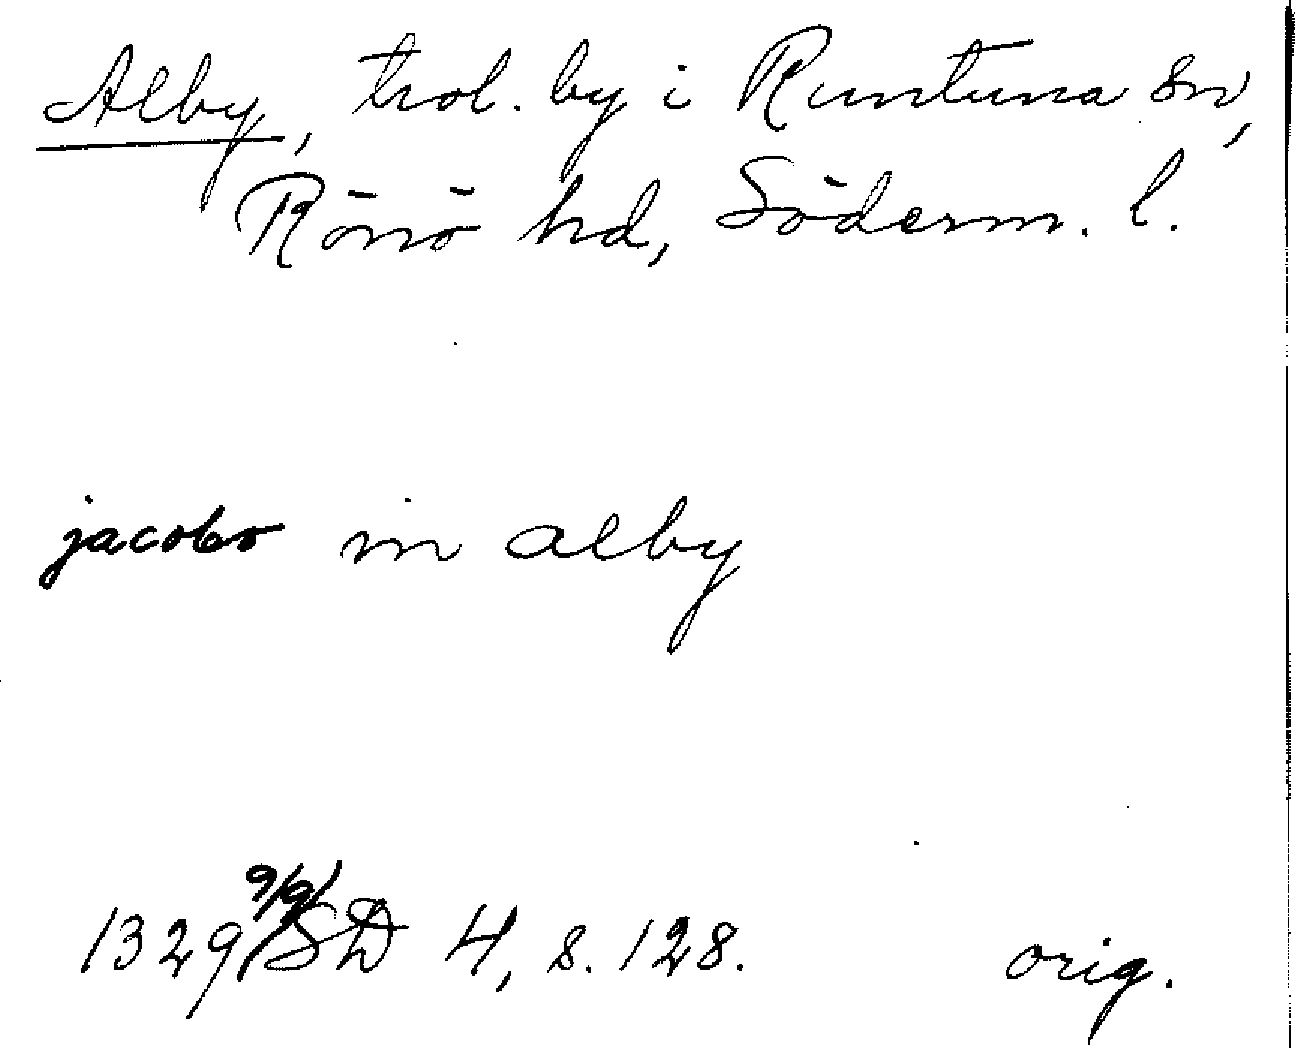 Alby, trol. by i Runtuna sn,
Rönö hd, Söderm. l.
jacobo in alby
1329 9/9 SD 4, s. 128. orig.